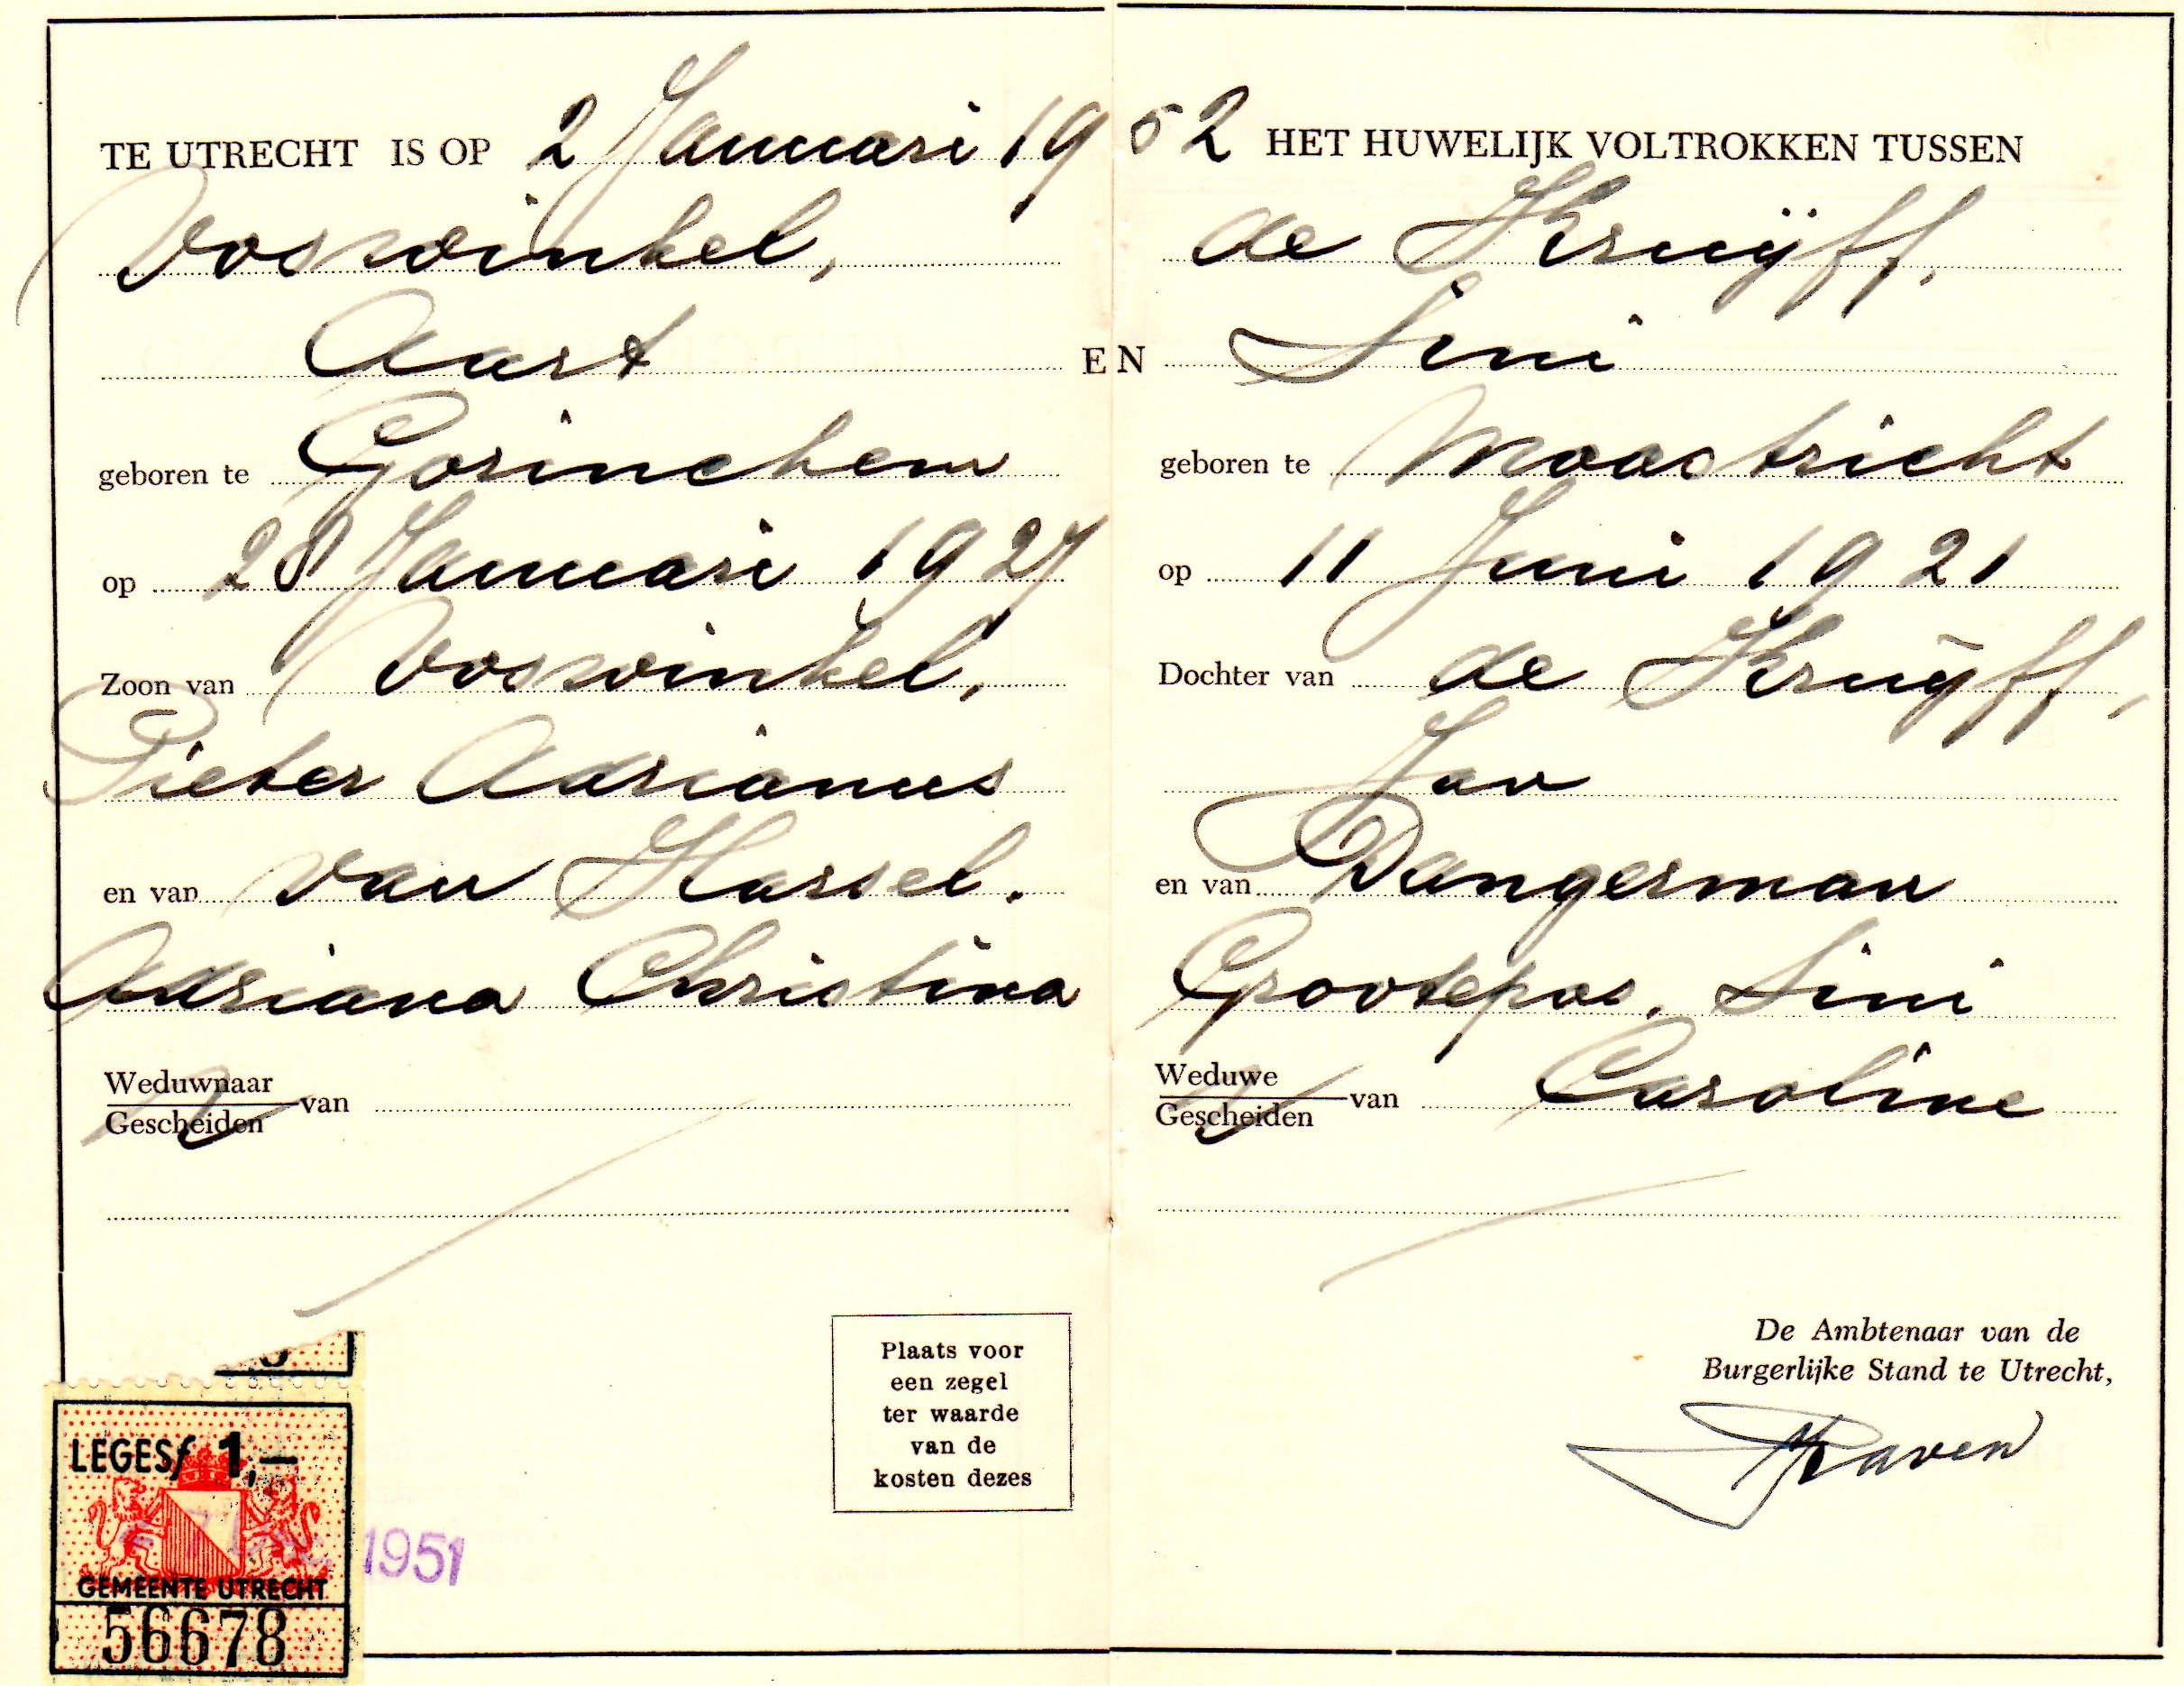 TE UTRECHT IS OP 2 Januari 1952 HET HUWELIJK VOLTROKKEN TUSSEN
Voswinkel,
Aart
geboren te Gorinchem
op 28 Januari 1927
Zoon van Voswinkel,
Pieter Adrianus
en van van Hassel.
Adriana Christina
Weduwnaar
Gescheiden van
EN
de Kruijff,
Sini
geboren te Maastricht
op 11 Juni 1921
Dochter van de Kruijff,
Jan
en van Dangerman
Grootepas, Sini
Weduwe
Gescheiden van Caroline
Plaats voor
een zegel
ter waarde
van de
kosten dezes
De Ambtenaar van de
Burgerlijke Stand te Utrecht,
LEGES f 1,—
GEMEENTE UTRECHT
56678
1951